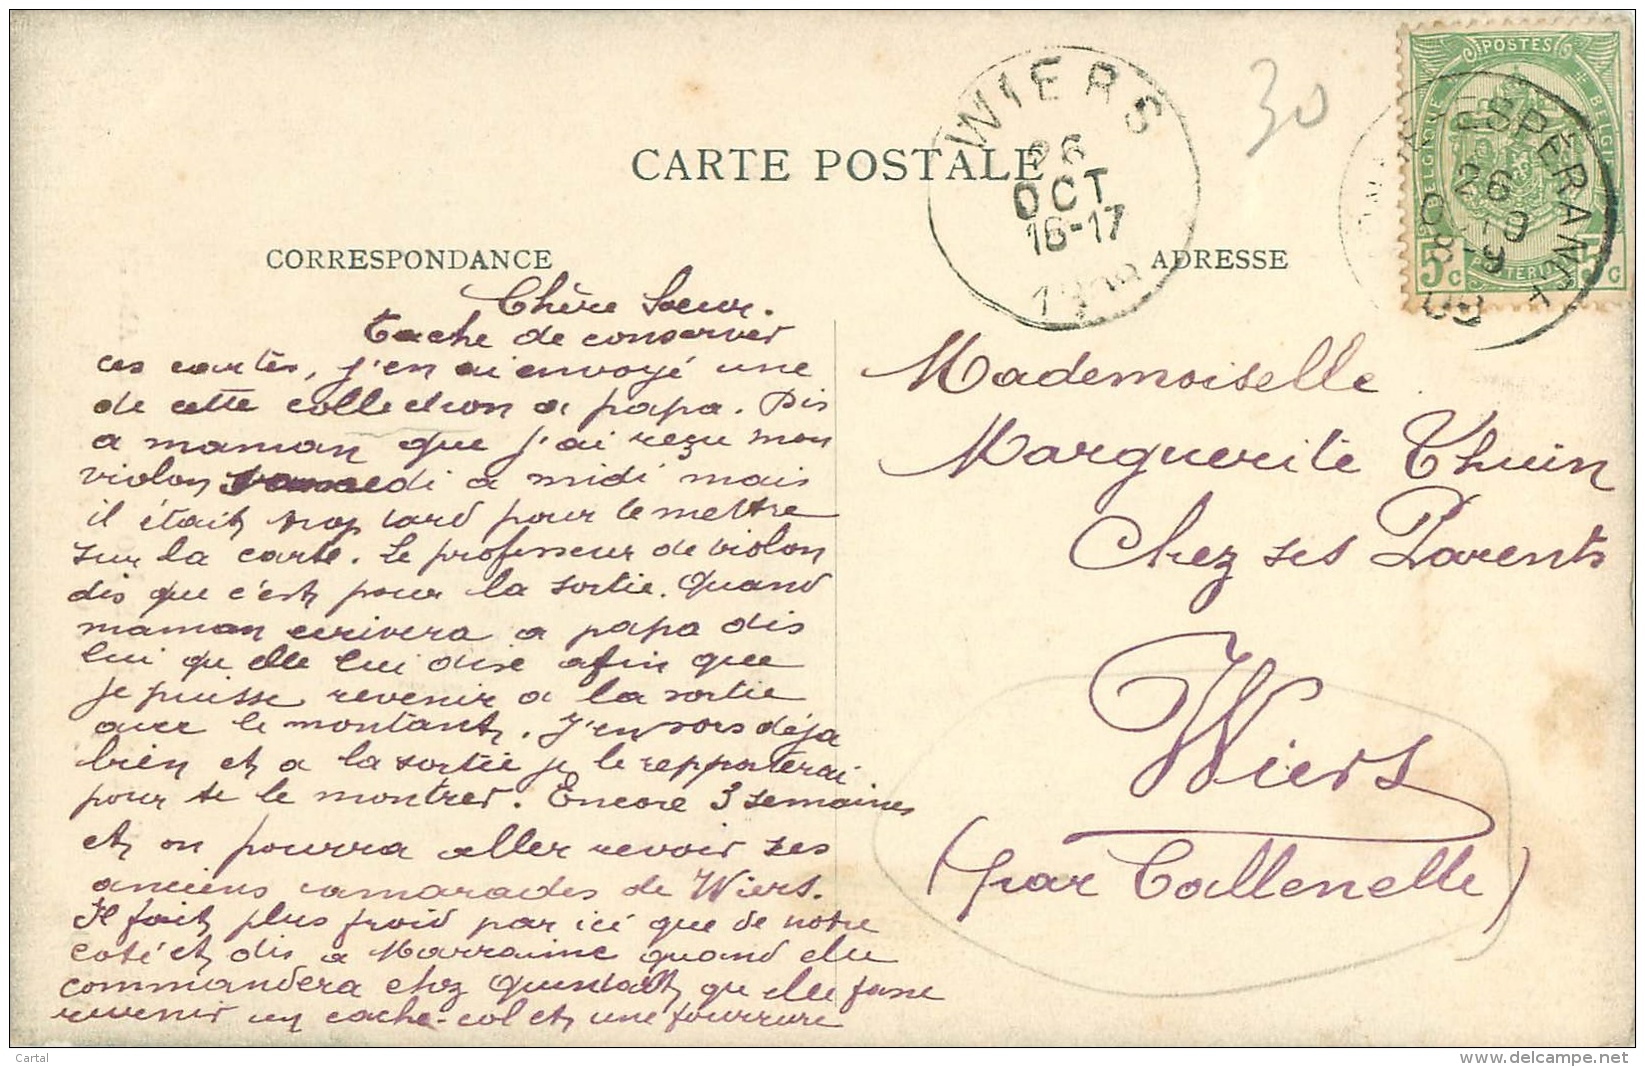 CARTE POSTALE
CORRESPONDANCE
ADRESSE
30
WIERS
26
OCT
16-17
POSTES
BELGIQUE
BELGIE
5c
5c
ESPÉRANCE
26
Chère Soeur.
Tache de conserver
ces cartes, j'en ai envoyé une
de cette collection a papa. Dis
a maman que j'ai reçu mon
violon samedi a midi mais
il était trop tard pour le mettre
sur la carte. Le professeur de violon
dis que c'est pour la sortie. Quand
maman ecrivera a papa dis
lui qu'elle lui dise afin que
je puisse revenir a la sortie
avec le montant. J'en sors déja
bien et a la sortie je le repporterai
pour te le montrer. Encore 3 semaines
et on pourra aller revoir ses
anciens camarades de Wiers.
Il fait plus froid par ici que de notre
coté et dis a Marraine quand elle
commandera chez qu'elle fasse
revenir un cache-col et une fourrure
Mademoiselle
Marguerite Thuin
Chez ses Parents
Wiers
(par Callenelle)
Cartal
delcampe.net